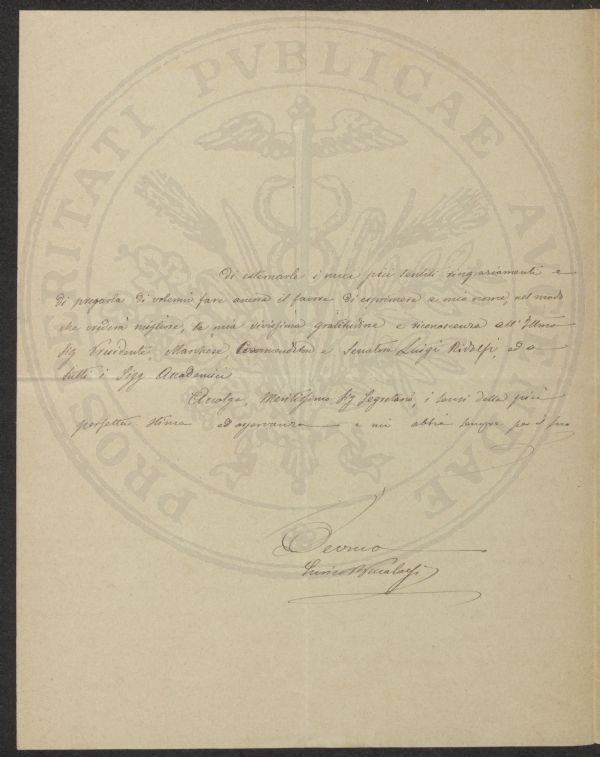 PROSPERITATI PVBLICAE AVGENDAE
di esternarle i miei più sentiti ringraziamenti e
di pregarla di volermi fare ancora il favore di esprimere a mio nome, nel modo
che crederà migliore, la mia vivissima gratitudine e riconoscenza all'Illmo
Sig Presidente, Marchese Commendatore e Senatore Luigi Ridolfi, ed a
tutti i Sigg Accademici
Accolga, Meritissimo Sig Segretario, i sensi della più
perfetta stima ed osservanza e mi abbia sempre per il suo
Devmo
Enrico